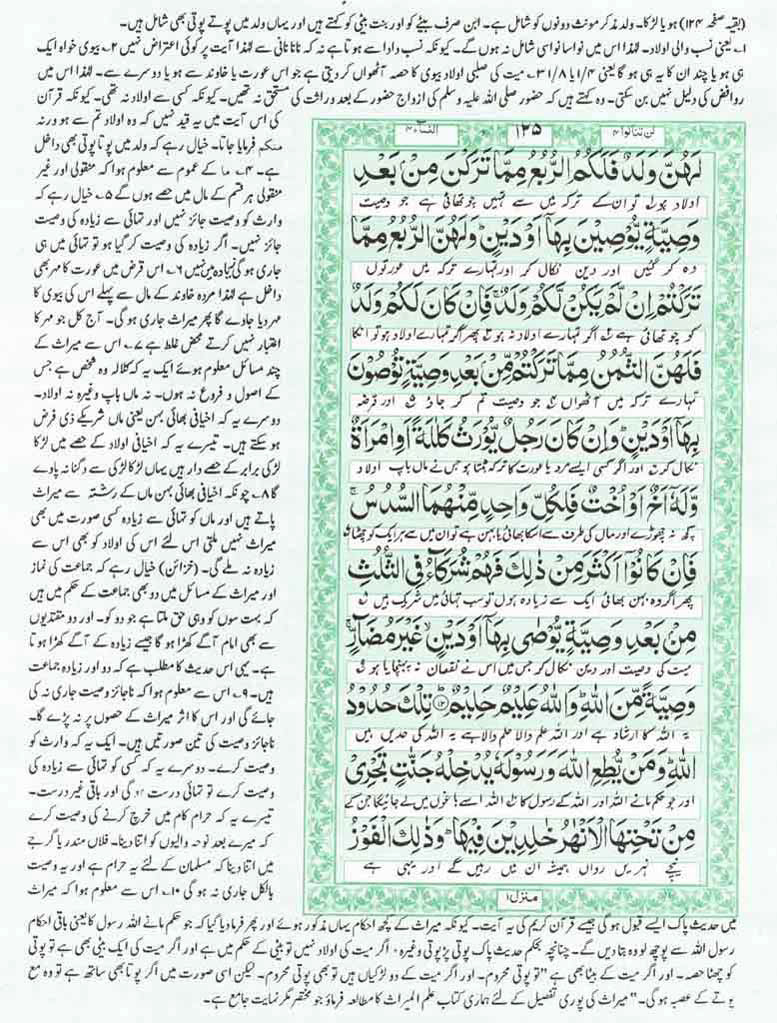 (بقیہ صفحہ ۱۲۴) ہو یا لڑکا۔ ولد مذکر مونث دونوں کو شامل ہے۔ ابن صرف بیٹے کو اور بنت بیٹی کو کہتے ہیں اور یہاں ولد میں پوتے پوتی بھی شامل ہیں۔
۱۔ یعنی نسب والی اولاد۔ لہذا اس میں نواسا نواسی شامل نہ ہوں گے۔ کیونکہ نسب دادا سے ہوتا ہے نہ کہ نانا نانی سے لہذا آیت پر کوئی اعتراض نہیں ۲۔ بیوی خواہ ایک
ہی ہو یا چند ان کا یہ ہی ہو گا یعنی ۱/۴ یا ۱/۸ ۳۔ میت کی صلبی اولاد بیوی کا حصہ آٹھواں کر دیتی ہے جو اس عورت یا خاوند سے ہو یا دوسرے سے۔ لہذا اس میں
روافض کی دلیل نہیں بن سکتی۔ وہ کہتے ہیں کہ حضور صلی اللہ علیہ وسلم کی ازواج حضور کے بعد وراثت کی مستحق نہ تھیں۔ کیونکہ کسی سے اولاد نہ تھی۔ کیونکہ قرآن
کی اس آیت میں یہ قید نہیں کہ وہ اولاد تم سے ہو ورنہ
منکم فرمایا جاتا۔ خیال رہے کہ ولد میں پوتا پوتی بھی داخل
ہے۔ ۴۔ ما کے عموم سے معلوم ہوا کہ منقولی اور غیر
منقولی ہر قسم کے مال میں حصے ہوں گے ۵۔ خیال رہے کہ
وارث کو وصیت جائز نہیں اور تہائی سے زیادہ کی وصیت
جائز نہیں۔ اگر زیادہ کی وصیت کر گیا ہو تو تہائی میں ہی
جاری ہو گی زیادہ میں نہیں ۶۔ اس قرض میں عورت کا مہر بھی
داخل ہے لہذا مردہ خاوند کے مال سے پہلے اس کی بیوی کا
مہر دیا جاوے گا پھر میراث جاری ہو گی۔ آج کل جو مہر کا
اعتبار نہیں کرتے محض غلط ہے ۷۔ اس سے میراث کے
چند مسائل معلوم ہوئے ایک یہ کہ کلالہ وہ شخص ہے جس
کے اصول و فروع نہ ہوں۔ نہ ماں باپ وغیرہ نہ اولاد۔
دوسرے یہ کہ اخیافی بھائی بہن یعنی ماں شریکے ذی فرض
ہو سکتے ہیں۔ تیسرے یہ کہ اخیافی اولاد کے حصے میں لڑکا
لڑکی برابر کے حصے دار ہیں یہاں لڑکا لڑکی سے دگنا نہ پاوے
گا ۸۔ چونکہ اخیافی بھائی بہن ماں کے رشتہ سے میراث
پاتے ہیں اور ماں کو تہائی سے زیادہ کسی صورت میں بھی
میراث نہیں ملتی اس لئے اس کی اولاد کو بھی اس سے
زیادہ نہ ملے گی۔ (خزائن) خیال رہے کہ جماعت کی نماز
اور میراث کے مسائل میں دو بھی جماعت کے حکم میں ہیں
کہ بہت سوں کو وہی حق ملتا ہے جو دو کو۔ اور دو مقتدیوں
سے بھی امام آگے کھڑا ہو گا جیسے زیادہ کے آگے کھڑا ہوتا
ہے۔ یہی اس حدیث کا مطلب ہے کہ دو اور زیادہ جماعت
ہیں۔ ۹۔ اس سے معلوم ہوا کہ ناجائز وصیت جاری نہ کی
جائے گی اور اس کا اثر میراث کے حصوں پر نہ پڑے گا۔
ناجائز وصیت کی تین صورتیں ہیں۔ ایک یہ کہ وارث کو
وصیت کرے۔ دوسرے یہ کہ کسی کو تہائی سے زیادہ کی
وصیت کرے تو تہائی درست ہو گی اور باقی غیر درست۔
تیسرے یہ کہ حرام کام میں خرچ کرنے کی وصیت کرے
کہ میرے بعد نوحہ والیوں کو اتنا دینا۔ فلاں مندر یا گرجے
میں اتنا دینا کہ مسلمان کے لئے یہ حرام ہے اور یہ وصیت
بالکل جاری نہ ہو گی ۱۰۔ اس سے معلوم ہوا کہ میراث
لن تنالوا ۴
۱۲۵
النساء ۴
لَهُنَّ وَلَدٌ فَلَكُمُ الرُّبُعُ مِمَّا تَرَكْنَ مِنْ بَعْدِ
اولاد ہو تو ان کے ترکہ میں سے تمہیں چوتھائی ہے جو وصیت
وَصِيَّةٍ يُّوْصِيْنَ بِهَآ اَوْ دَيْنٍ ؕ وَلَهُنَّ الرُّبُعُ مِمَّا
وہ کر گئیں اور دین نکال کر اور تمہارے ترکہ میں عورتوں
تَرَكْتُمْ اِنْ لَّمْ يَكُنْ لَّكُمْ وَلَدٌ ۚ فَاِنْ كَانَ لَكُمْ وَلَدٌ
کو چوتھائی ہے اگر تمہارے اولاد نہ ہو پھر اگر تمہارے اولاد ہو تو انکا
فَلَهُنَّ الثُّمُنُ مِمَّا تَرَكْتُمْ مِّنْۢ بَعْدِ وَصِيَّةٍ تُوْصُوْنَ
تمہارے ترکہ میں سے آٹھواں جو وصیت تم کر جاؤ اور قرضہ
بِهَآ اَوْ دَيْنٍ ؕ وَاِنْ كَانَ رَجُلٌ يُّوْرَثُ كَلٰلَةً اَوِ امْرَاَةٌ
نکال کر اور اگر کسی ایسے مرد یا عورت کا ترکہ بٹتا ہو جس نے ماں باپ اولاد
وَّلَهٗۤ اَخٌ اَوْ اُخْتٌ فَلِكُلِّ وَاحِدٍ مِّنْهُمَا السُّدُسُ ۚ
کچھ نہ چھوڑے اور ماں کی طرف سے اسکا بھائی یا بہن ہے تو ان میں سے ہر ایک کو چھٹا
فَاِنْ كَانُوْٓا اَكْثَرَ مِنْ ذٰلِكَ فَهُمْ شُرَكَآءُ فِى الثُّلُثِ
پھر اگر وہ بہن بھائی ایک سے زیادہ ہوں تو سب تہائی میں شریک ہیں
مِنْۢ بَعْدِ وَصِيَّةٍ يُّوْصٰى بِهَآ اَوْ دَيْنٍ ۙ غَيْرَ مُضَآرٍّ ۚ
میت کی وصیت اور دین نکال کر جس میں اس نے نقصان نہ پہنچایا ہو
وَصِيَّةً مِّنَ اللّٰهِ ؕ وَاللّٰهُ عَلِيْمٌ حَلِيْمٌ ؕ﴿۱۲﴾ تِلْكَ حُدُوْدُ
یہ اللہ کا ارشاد ہے اور اللہ علم والا حلم والا ہے یہ اللہ کی حدیں ہیں
اللّٰهِ ؕ وَمَنْ يُّطِعِ اللّٰهَ وَرَسُوْلَهٗ يُدْخِلْهُ جَنّٰتٍ تَجْرِىْ
اور جو حکم مانے اللہ اور اللہ کے رسول کا اللہ اسے باغوں میں لے جائیگا جن کے
مِنْ تَحْتِهَا الْاَنْهٰرُ خٰلِدِيْنَ فِيْهَا ؕ وَذٰلِكَ الْفَوْزُ
نیچے نہریں رواں ہمیشہ ان میں رہیں گے اور یہی ہے
منزل ۱
میں حدیث پاک ایسے قبول ہو گی جیسے قرآن کریم کی یہ آیت۔ کیونکہ میراث کے کچھ احکام یہاں مذکور ہوئے اور پھر فرما دیا گیا کہ جو حکم مانے اللہ رسول کا یعنی باقی احکام
رسول اللہ سے پوچھ لو وہ بتا دیں گے۔ چنانچہ بحکم حدیث پاک پوتی پڑپوتی وغیرہ، اگر میت کی اولاد نہیں تو بیٹی کے حکم میں ہے اور اگر میت کی ایک بیٹی بھی ہے تو پوتی
کو چھٹا حصہ۔ اور اگر میت کے بیٹا بھی ہے "تو پوتی محروم۔ اور اگر میت کے دو لڑکیاں ہیں تو بھی پوتی محروم۔ لیکن اسی صورت میں اگر پوتا بھی ساتھ ہے تو وہ مع
پوتے کے عصبہ ہو گی۔" میراث کی پوری تفصیل کے لئے ہماری کتاب علم المیراث کا مطالعہ فرماؤ جو مختصر مگر نہایت جامع ہے۔